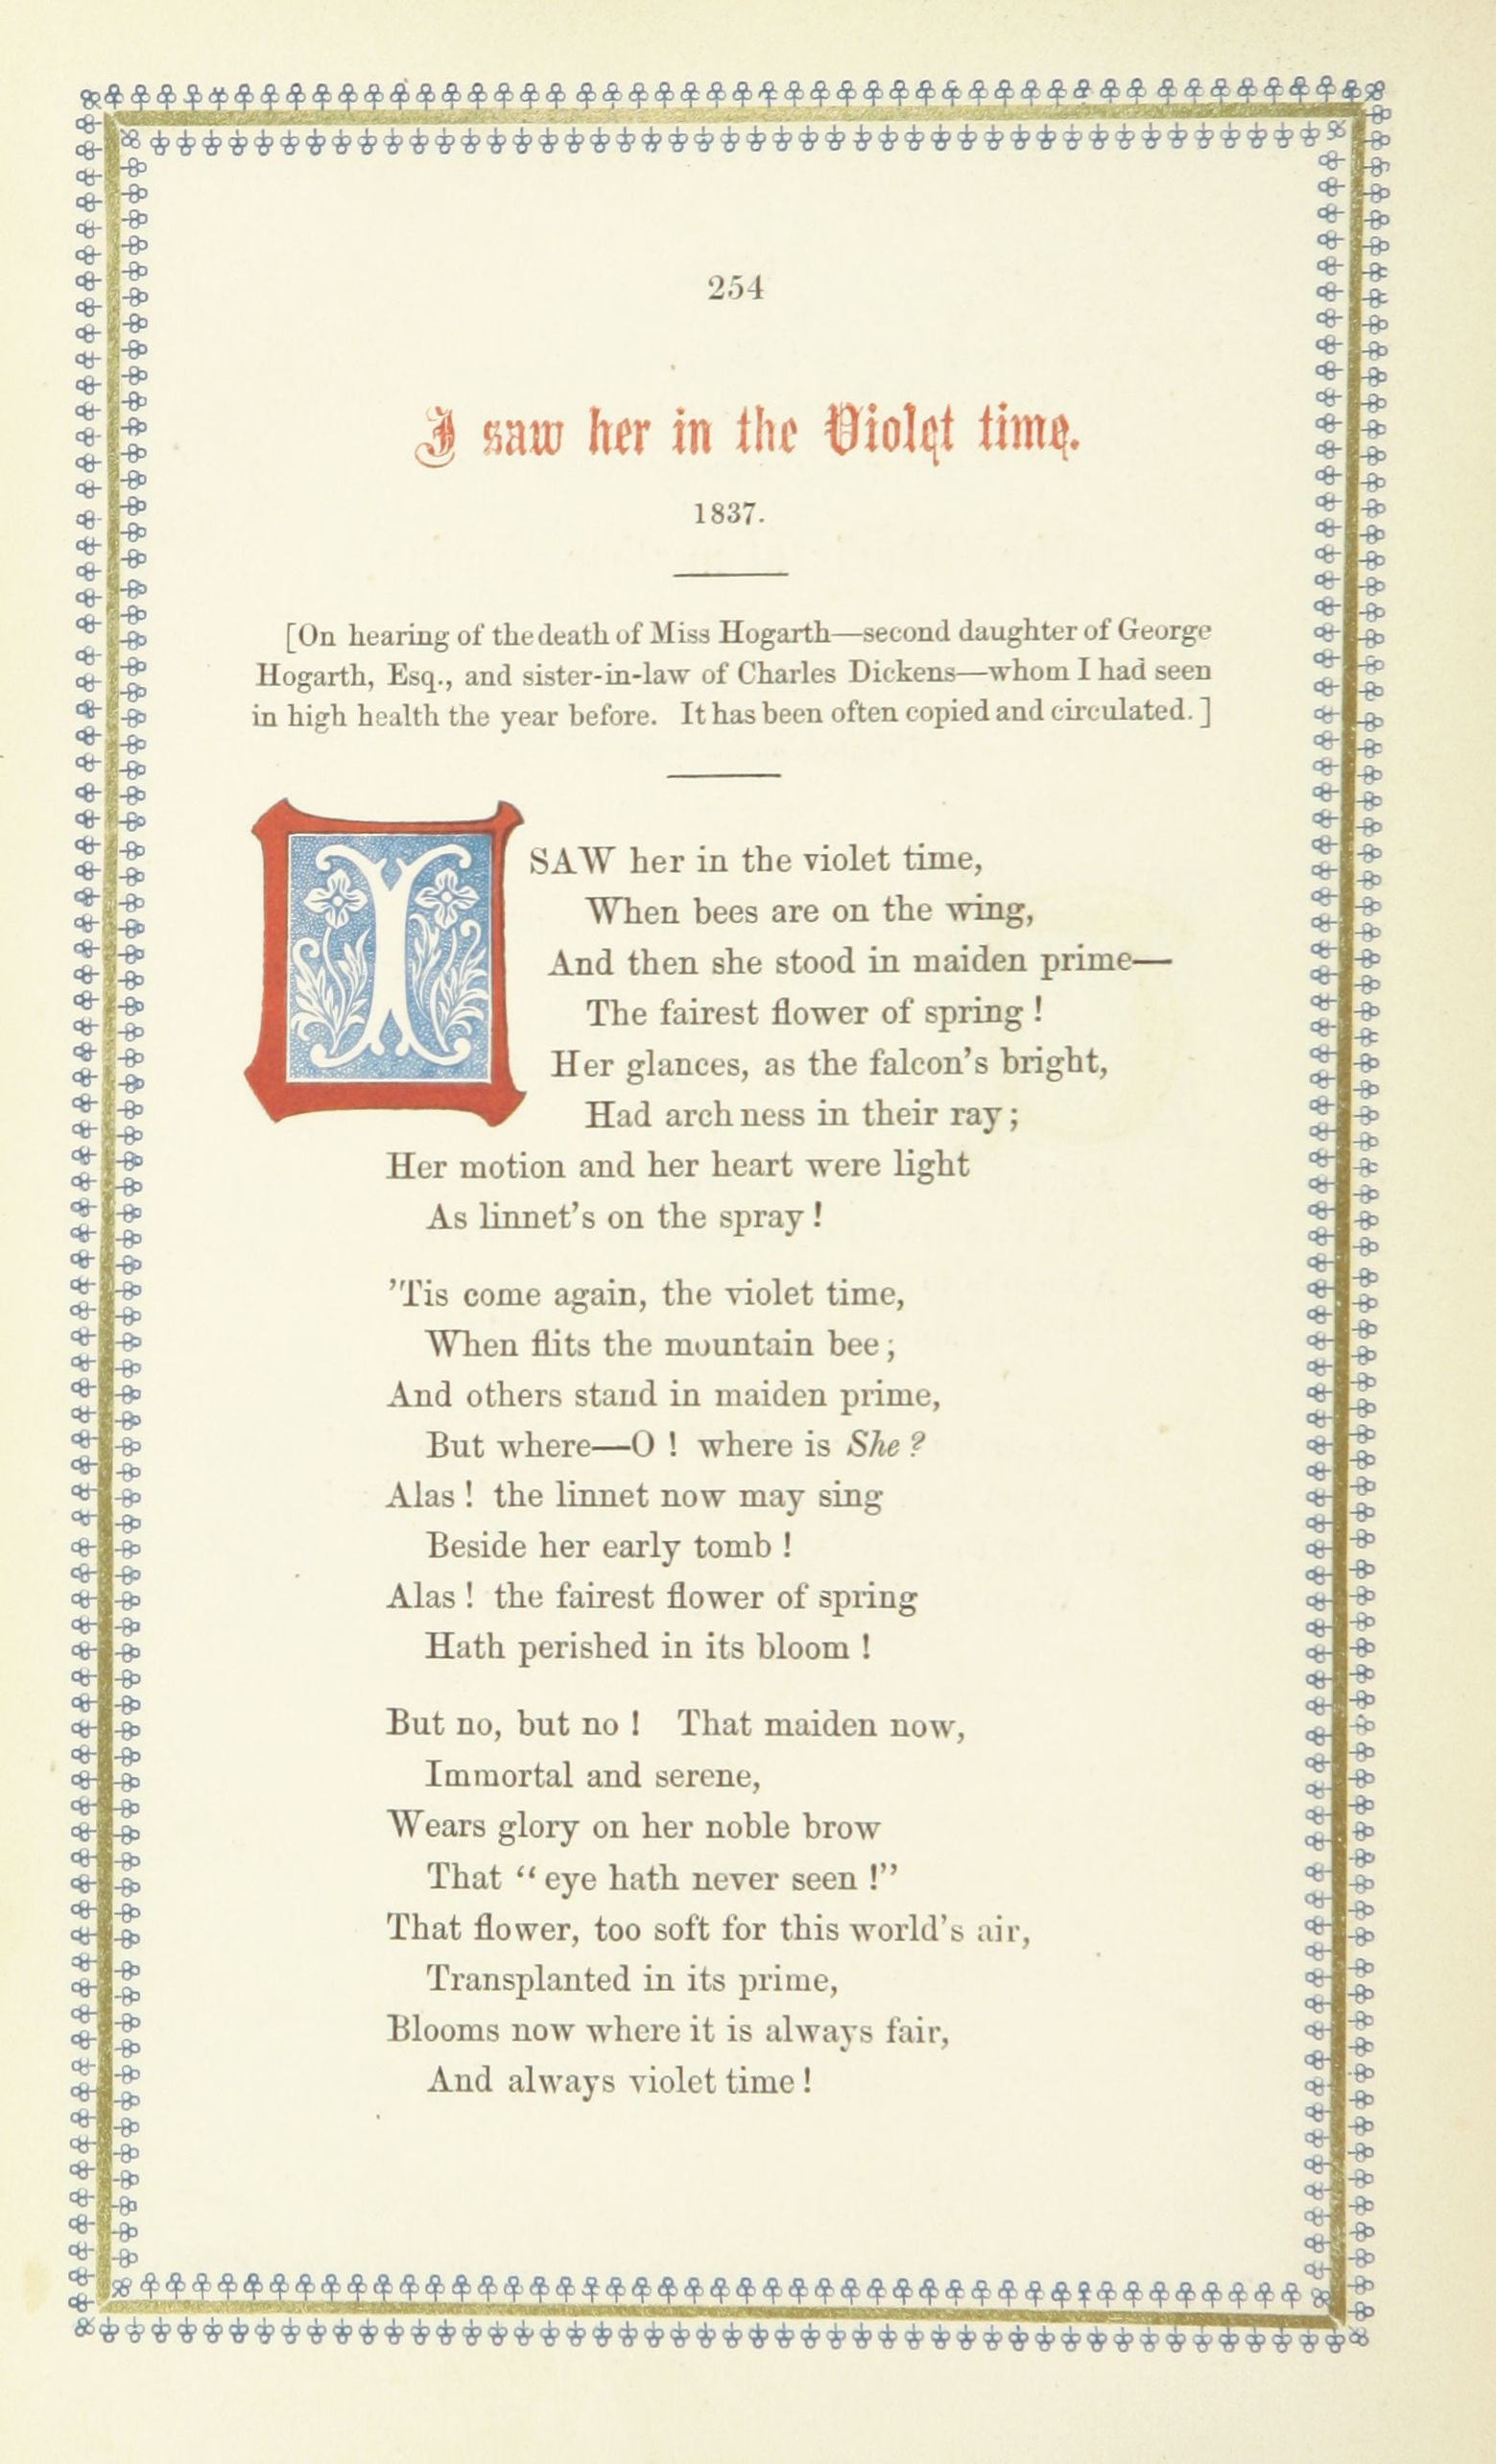 254
I saw her in the Violet time.
1837.
[On hearing of the death of Miss Hogarth—second daughter of George
Hogarth, Esq., and sister-in-law of Charles Dickens—whom I had seen
in high health the year before. It has been often copied and circulated.]
I SAW her in the violet time,
When bees are on the wing,
And then she stood in maiden prime—
The fairest flower of spring!
Her glances, as the falcon's bright,
Had archness in their ray;
Her motion and her heart were light
As linnet's on the spray!
'Tis come again, the violet time,
When flits the mountain bee;
And others stand in maiden prime,
But where—O! where is She?
Alas! the linnet now may sing
Beside her early tomb!
Alas! the fairest flower of spring
Hath perished in its bloom!
But no, but no! That maiden now,
Immortal and serene,
Wears glory on her noble brow
That "eye hath never seen!"
That flower, too soft for this world's air,
Transplanted in its prime,
Blooms now where it is always fair,
And always violet time!